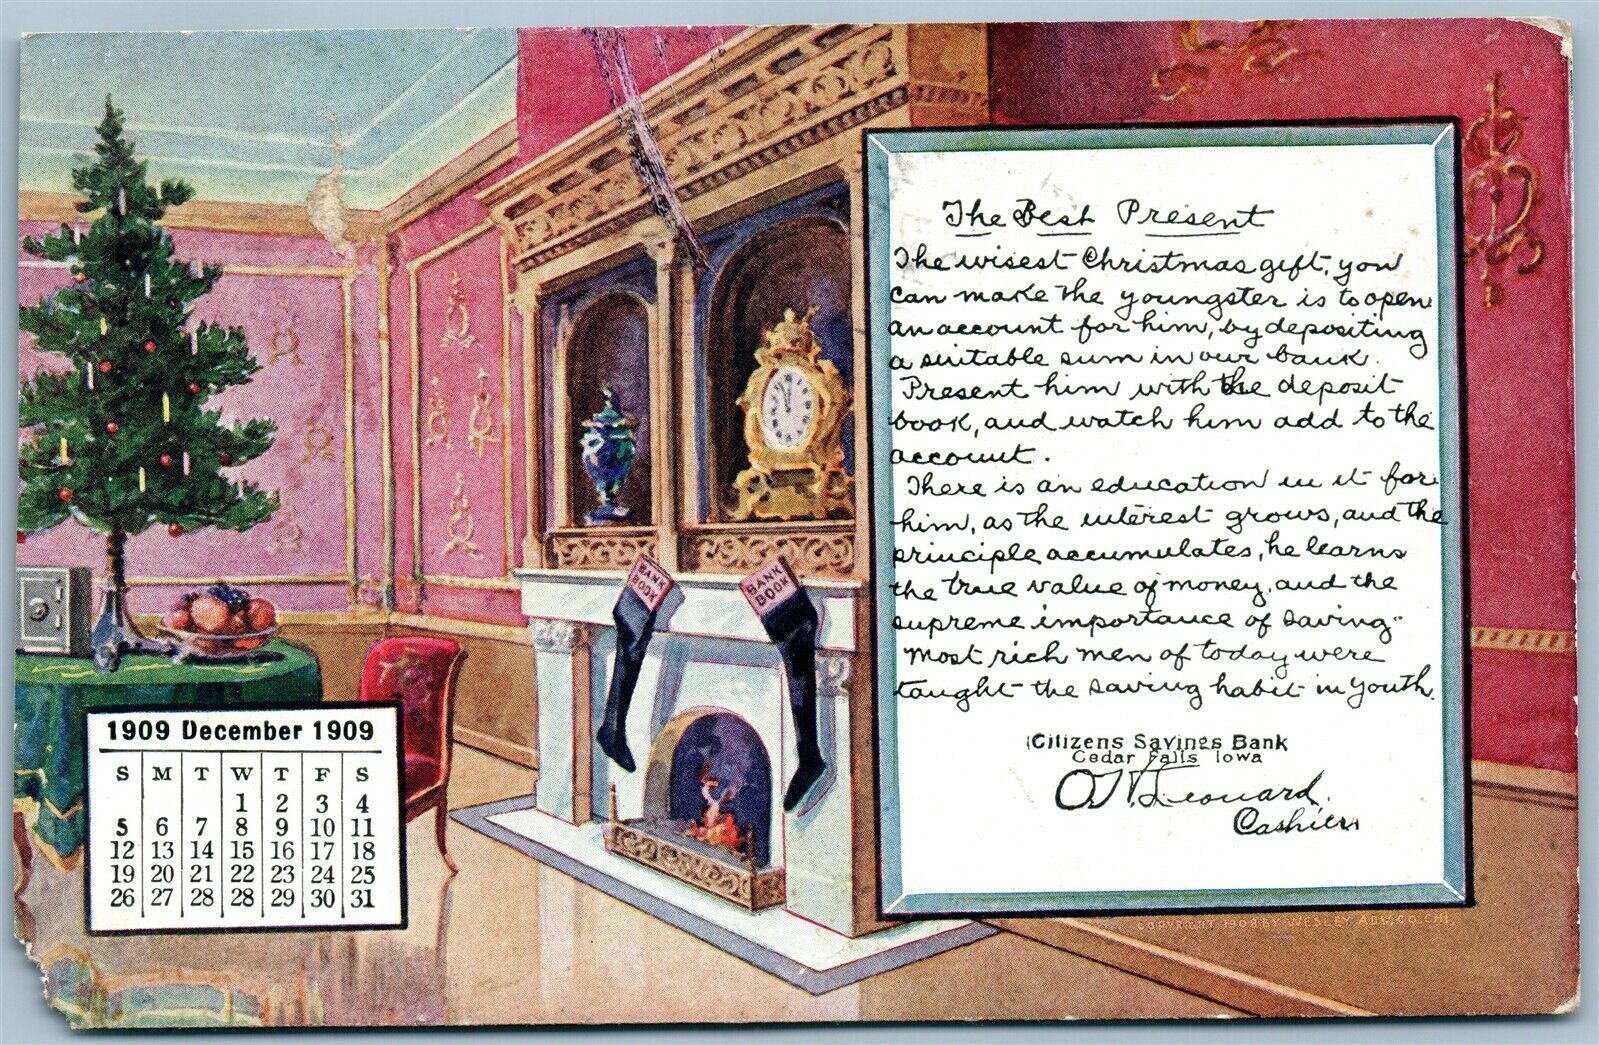 The Best Present
The wisest Christmas gift, you
can make the youngster is to open
an account for him, by depositing
a suitable sum in our bank.
Present him with the deposit
book, and watch him add to the
account.
There is an education in it for
him, as the interest grows, and the
principle accumulates, he learns
the true value of money, and the
supreme importance of saving"
Most rich men of today were
taught the saving habit in youth.
Citizens Savings Bank
Cedar Falls Iowa
Leonard.
Cashier
BANK
BOOK
BANK
BOOK
1909 December 1909
S M T W T F S
1 2 3 4
5 6 7 8 9 10 11
12 13 14 15 16 17 18
19 20 21 22 23 24 25
26 27 28 28 29 30 31
COPYRIGHT 1908 BY WESLEY ADV. CO. CHI.